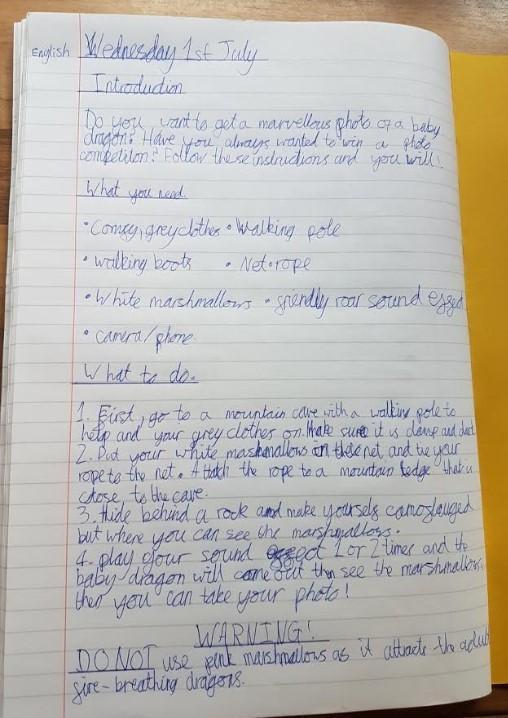 English
Wednesday 1st July
Introduction
Do you want to get a marvellous photo of a baby
dragon? Have you always wanted to win a photo
competiton? Follow these instructions and you will!
What you need.
• Comfy, grey clothes • Walking pole
• walking boots • Net • rope
• White marshmallows • friendly roar sound effect
• camera/phone
What to do.
1. First, go to a mountain cave with a walking pole to
help and your grey clothes on. Make sure it is damp and
2. Put your white mashmallows in the net, and tie your
rope to the net. Attach the rope to a mountain ledge
close to the cave.
3. Hide behind a rock and make yourself camoflauged
but where you can see the marshmallows.
4. play your sound 1 or 2 times and the
baby dragon will come out then see the marshmallows,
then you can take your photo!
WARNING!
DO NOT use pink marshmallows as it attracts the adult
fire-breathing dragons.